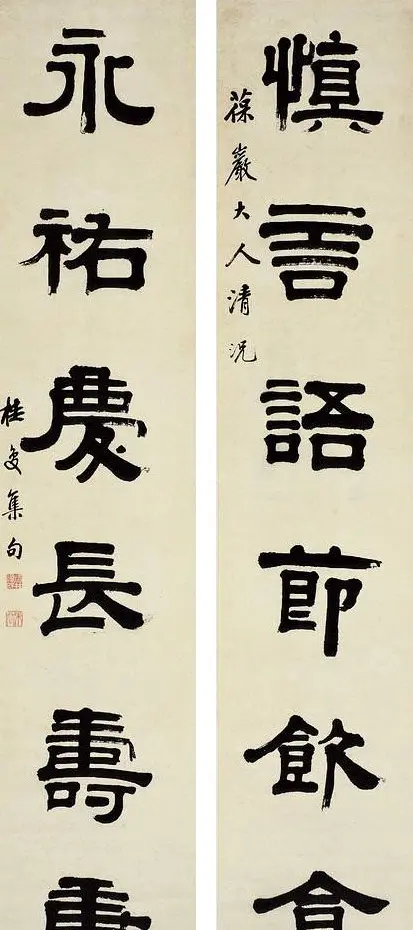 慎言語節飲
葆巖大人清況
永祐慶長壽
桂复集句